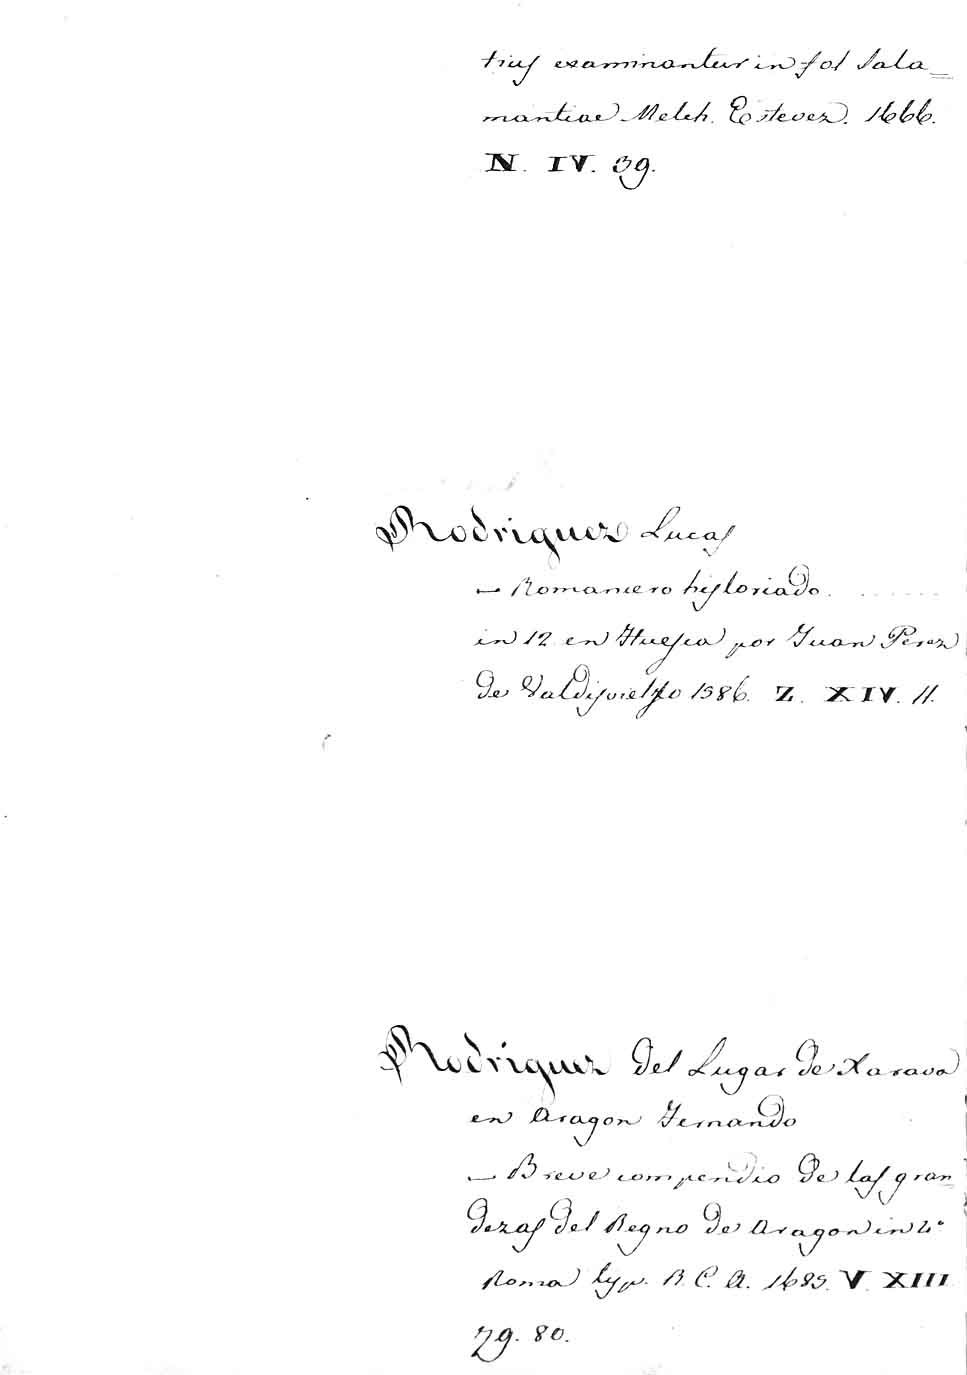 tius examinantur in fol Sala_
mantiae Melch. Estevez. 1666.
N. IV. 39.
Rodriguez Lucas
— Romancero historiado. . . . . . .
in 12 en Huesca por Juan Perez
de Valdivielso 1586. Z. XIV. 11.
Rodriguez del Lugar de Xarava
en Aragon Fernando
— Breve compendio de las gran_
dezas del Regno de Aragon in 4°
Roma typ. R. C. A. 1685. V. XIII
79. 80.